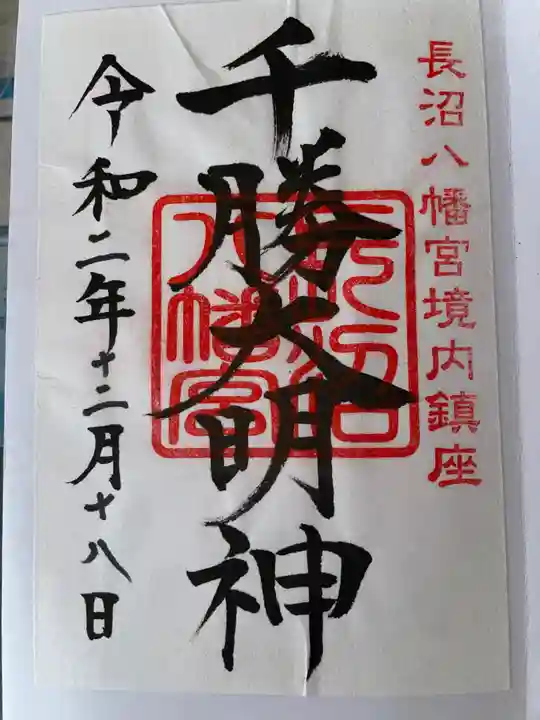 長沼八幡宮境内鎮座
千勝大明神
長沼
八幡宮
令和二年十二月十八日